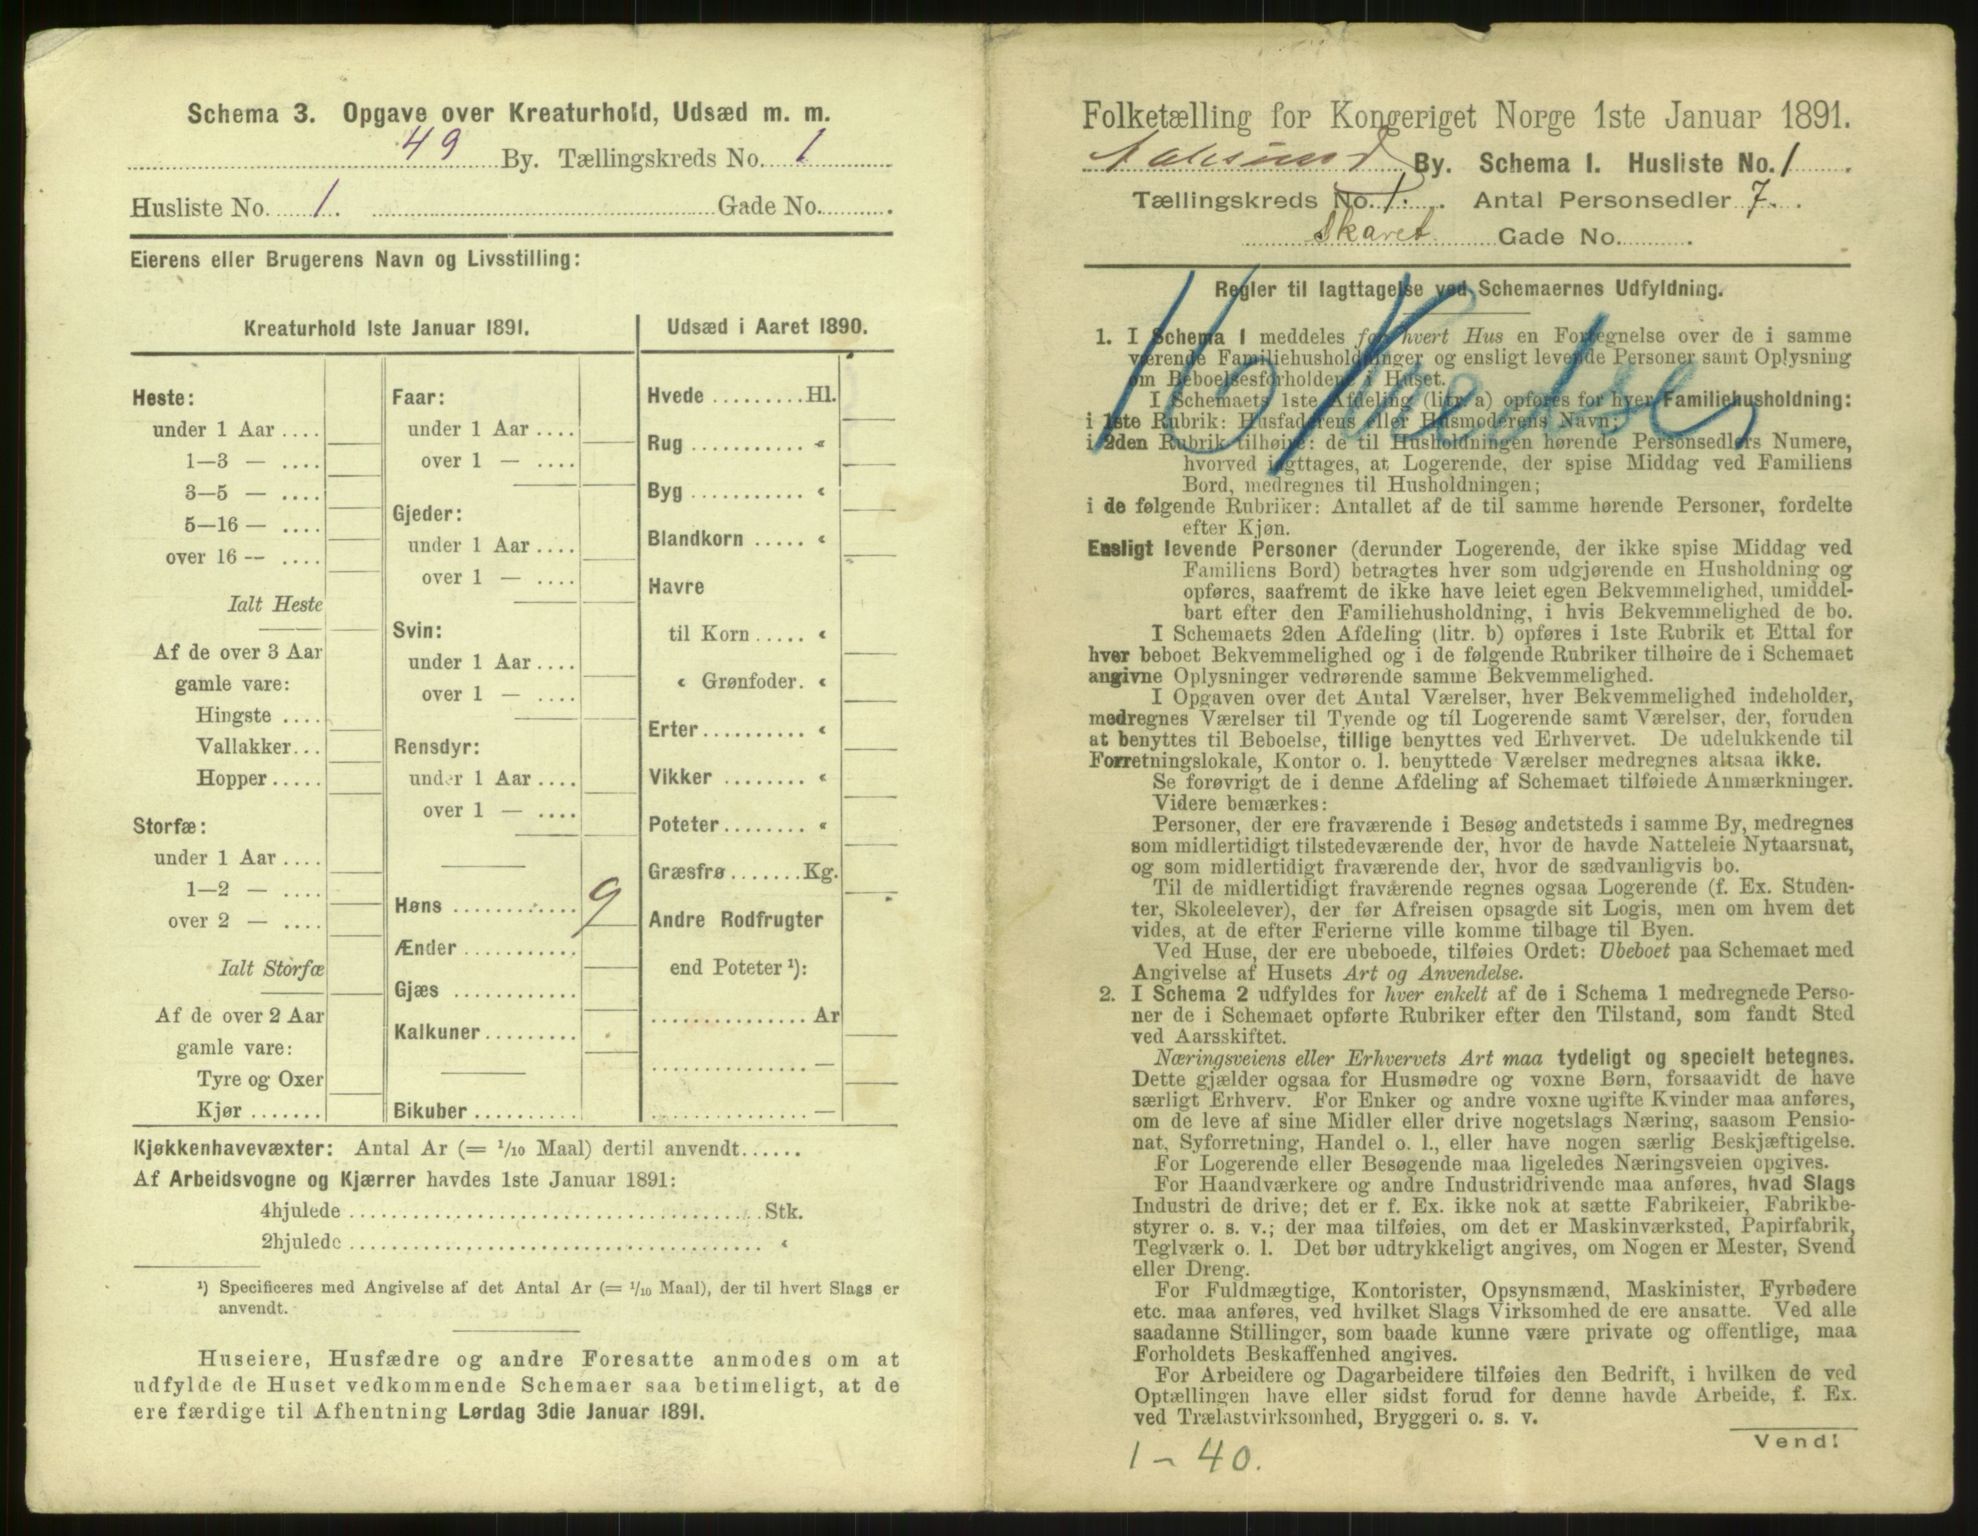 Schema 3. Opgave over Kreaturhold, Udsæd m. m.
49 By. Tællingskreds No. 1
Husliste No. 1. Gade No.
Eierens eller Brugerens Navn og Livsstilling:
Kreaturhold 1ste Januar 1891.
Heste:
under 1 Aar ....
1—3 — ....
3—5 — ....
5—16 — ....
over 16 — ....
Ialt Heste
Af de over 3 Aar
gamle vare:
Hingste ....
Vallakker...
Hopper.....
Storfæ:
under 1 Aar ....
1—2 — ....
over 2 — ....
Ialt Storfæ
Af de over 2 Aar
gamle vare:
Tyre og Oxer
Kjør.......
Faar:
under 1 Aar ....
over 1 — ....
Gjeder:
under 1 Aar ....
over 1 — ....
Svin:
under 1 Aar ....
over 1 — ....
Rensdyr:
under 1 Aar ....
over 1 — ....
Høns ............ 9
Ænder ...........
Gjæs ............
Kalkuner .........
Bikuber ..........
Udsæd i Aaret 1890.
Hvede .........Hl.
Rug ........... “
Byg ........... “
Blandkorn ..... “
Havre
til Korn ..... “
“ Grønfoder. “
Erter.......... “
Vikker ........ “
Poteter........ “
Græsfrø.......Kg.
Andre Rodfrugter
end Poteter ¹):
............... Ar
............... —
............... —
Kjøkkenhavevæxter: Antal Ar (= 1/10 Maal) dertil anvendt......
Af Arbeidsvogne og Kjærrer havdes 1ste Januar 1891:
4hjulede ........................................Stk.
2hjulede ........................................ “
¹) Specificeres med Angivelse af det Antal Ar (= 1/10 Maal), der til hvert Slags er
anvendt.
Huseiere, Husfædre og andre Foresatte anmodes om at
udfylde de Huset vedkommende Schemaer saa betimeligt, at de
ere færdige til Afhentning Lørdag 3die Januar 1891.
Folketælling for Kongeriget Norge 1ste Januar 1891.
Aalesund By. Schema I. Husliste No. 1
Tællingskreds No. 1. Antal Personsedler 7.
Skaret Gade No.
16 Kredse
Regler til Iagttagelse ved Schemaernes Udfyldning.
1. I Schema 1 meddeles for hvert Hus en Fortegnelse over de i samme
værende Familiehusholdninger og ensligt levende Personer samt Oplysning
om Beboelsesforholdene i Huset.
I Schemaets 1ste Afdeling (litr. a) opføres for hver Familiehusholdning:
i 1ste Rubrik: Husfaderens eller Husmoderens Navn;
i 2den Rubrik tilhøire: de til Husholdningen hørende Personsedlers Numere,
hvorved iagttages, at Logerende, der spise Middag ved Familiens
Bord, medregnes til Husholdningen;
i de følgende Rubriker: Antallet af de til samme hørende Personer, fordelte
efter Kjøn.
Ensligt levende Personer (derunder Logerende, der ikke spise Middag ved
Familiens Bord) betragtes hver som udgjørende en Husholdning og
opføres, saafremt de ikke have leiet egen Bekvemmelighed, umiddel-
bart efter den Familiehusholdning, i hvis Bekvemmelighed de bo.
I Schemaets 2den Afdeling (litr. b) opføres i 1ste Rubrik et Ettal for
hver beboet Bekvemmelighed og i de følgende Rubriker tilhøire de i Schemaet
angivne Oplysninger vedrørende samme Bekvemmelighed.
I Opgaven over det Antal Værelser, hver Bekvemmelighed indeholder,
medregnes Værelser til Tyende og til Logerende samt Værelser, der, foruden
at benyttes til Beboelse, tillige benyttes ved Erhvervet. De udelukkende til
Forretningslokale, Kontor o. l. benyttede Værelser medregnes altsaa ikke.
Se forøvrigt de i denne Afdeling af Schemaet tilføiede Anmærkninger.
Videre bemærkes:
Personer, der ere fraværende i Besøg andetsteds i samme By, medregnes
som midlertidigt tilstedeværende der, hvor de havde Natteleie Nytaarsnat,
og som midlertidigt fraværende der, hvor de sædvanligvis bo.
Til de midlertidigt fraværende regnes ogsaa Logerende (f. Ex. Studen-
ter, Skoleelever), der før Afreisen opsagde sit Logis, men om hvem det
vides, at de efter Ferierne ville komme tilbage til Byen.
Ved Huse, der ere ubeboede, tilføies Ordet: Ubeboet paa Schemaet med
Angivelse af Husets Art og Anvendelse.
2. I Schema 2 udfyldes for hver enkelt af de i Schema 1 medregnede Perso-
ner de i Schemaet opførte Rubriker efter den Tilstand, som fandt Sted
ved Aarsskiftet.
Næringsveiens eller Erhvervets Art maa tydeligt og specielt betegnes.
Dette gjælder ogsaa for Husmødre og voxne Børn, forsaavidt de have
særligt Erhverv. For Enker og andre voxne ugifte Kvinder maa anføres,
om de leve af sine Midler eller drive nogetslags Næring, saasom Pensio-
nat, Syforretning, Handel o. l., eller have nogen særlig Beskjæftigelse.
For Logerende eller Besøgende maa ligeledes Næringsveien opgives.
For Haandværkere og andre Industridrivende maa anføres, hvad Slags
Industri de drive; det er f. Ex. ikke nok at sætte Fabrikeier, Fabrikbe-
styrer o. s. v.; der maa tilføies, om det er Maskinværksted, Papirfabrik,
Teglværk o. l. Det bør udtrykkeligt angives, om Nogen er Mester, Svend
eller Dreng.
For Fuldmægtige, Kontorister, Opsynsmænd, Maskinister, Fyrbødere
etc. maa anføres, ved hvilket Slags Virksomhed de ere ansatte. Ved alle
saadanne Stillinger, som baade kunne være private og offentlige, maa
Forholdets Beskaffenhed angives.
For Arbeidere og Dagarbeidere tilføies den Bedrift, i hvilken de ved
Optællingen have eller sidst forud for denne havde Arbeide, f. Ex.
ved Trælastvirksomhed, Bryggeri o. s. v.
Vend!
1 – 40.